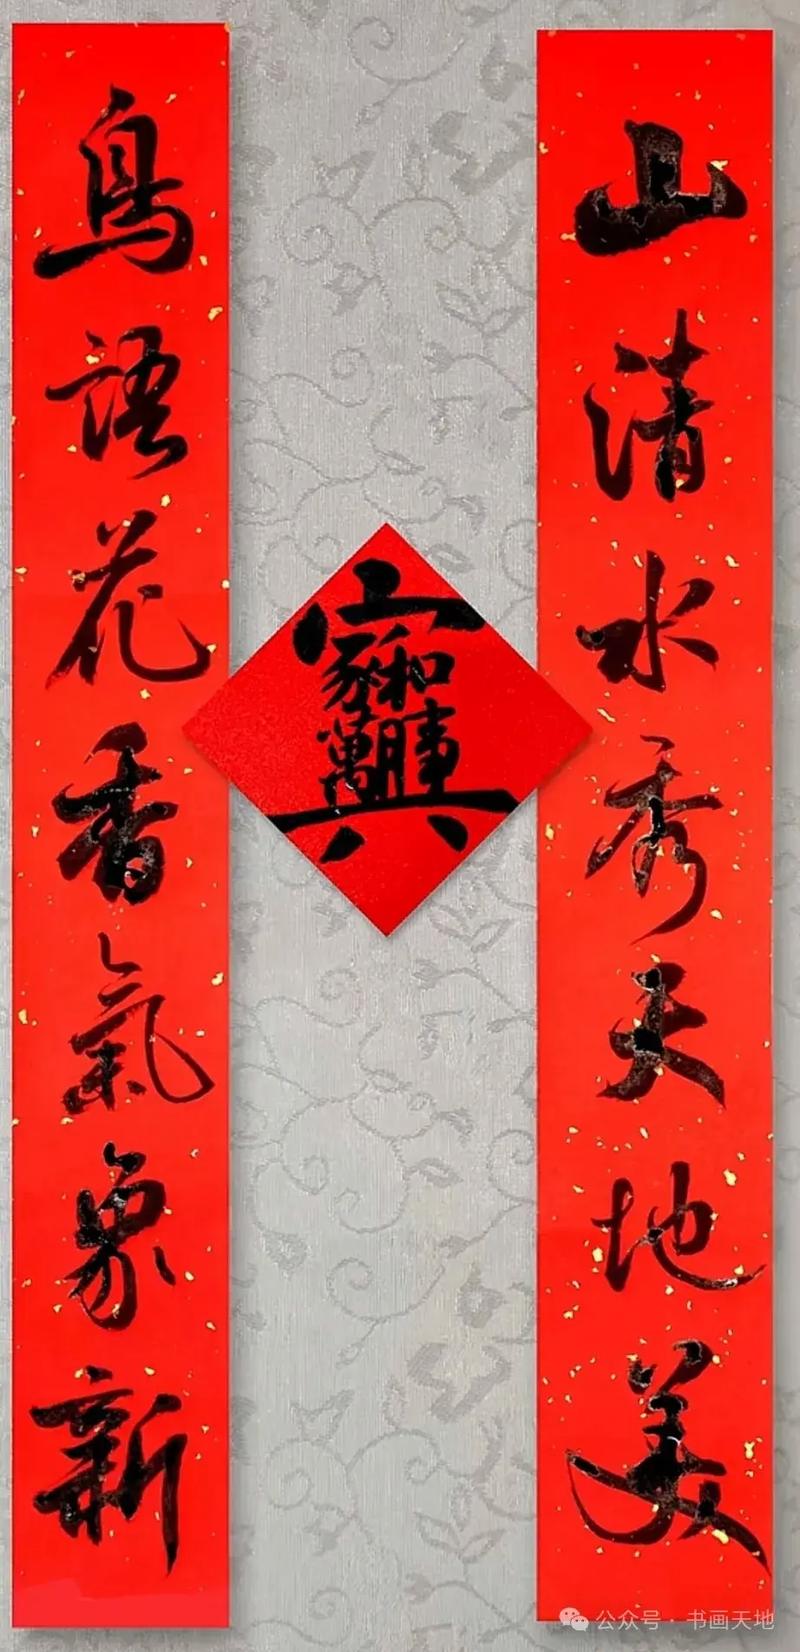 山清水秀天地美
鳥語花香氣象新
家和萬事興
公众号·书画天地